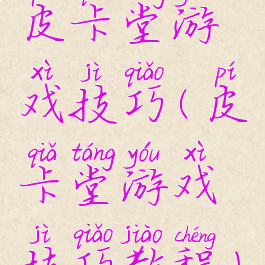 皮卡堂游
xì jì qiǎo pí
戏技巧(皮
qiǎ táng yóu xì
卡堂游戏
jì qiǎo jiào chéng
技巧教程)